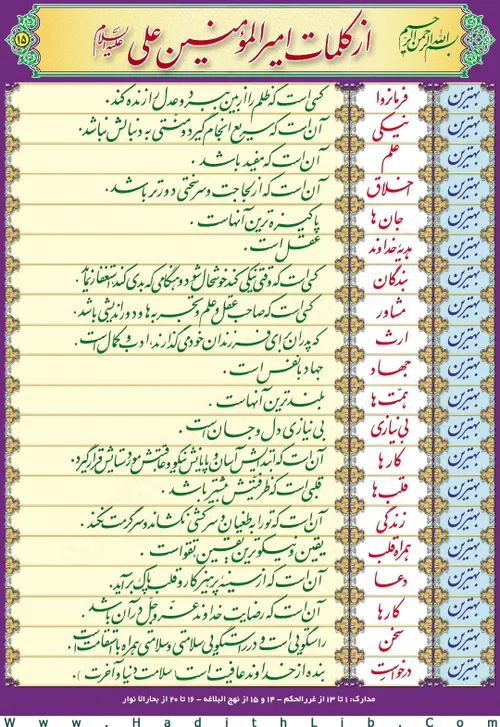 بسم الله الرحمن الرحیم
از کلمات امیرالمؤمنین علی علیه السلام
۱۵
بهترین فرمانروا کسی است که ظلم را از بین ببرد و عدل را زنده کند.
بهترین نیکی آن است که سریع انجام گیرد و منّتی به دنبالش نباشد.
بهترین علم آن است که مفید باشد.
بهترین اخلاق آن است که از لجاجت و سرسختی دورتر باشد.
بهترین جان ها پاکیزه ترین آنهاست.
بهترین هدیه خداوند عقل است.
بهترین بندگان کسی است که وقتی نیکی کند خوشحال شود و هنگامی که بدی کند استغفار نماید.
بهترین مشاور کسی است که صاحب عقل و علم و تجربه ها و دوراندیشی باشد.
بهترین ارث که پدران برای فرزندان خود می گذارند ادب و کمال است.
بهترین جهاد جهاد با نفس است.
بهترین همّت ها بلندترین آنهاست.
بهترین بی نیازی بی نیازی دل و جان است.
بهترین کارها آن است که ابتدایش آسان و پایانش نیکو و عاقبتش مورد ستایش قرار گیرد.
بهترین قلب ها قلبی است که ظرفیتش بیشتر باشد.
بهترین زندگی آن است که تو را به طغیان و سرکشی نکشاند و سرگرمت نکند.
بهترین همراه قلب یقین و نیکوترین یقین تقوا است.
بهترین دعا آن است که از سینه پرهیزکار و قلب پاک برآید.
بهترین کارها آن است که رضایت خداوند عزّ و جلّ در آن باشد.
بهترین سخن راستگویی است و در راستگویی سلامتی و سلامتی همراه با استقامت است.
بهترین درخواست بنده از خداوند عافیت است (سلامت دنیا و آخرت).
مدارک: ۱ تا ۱۳ از غررالحکم - ۱۴ و ۱۵ از نهج البلاغه - ۱۶ تا ۲۰ از بحارالانوار
www.HadithLib.Com